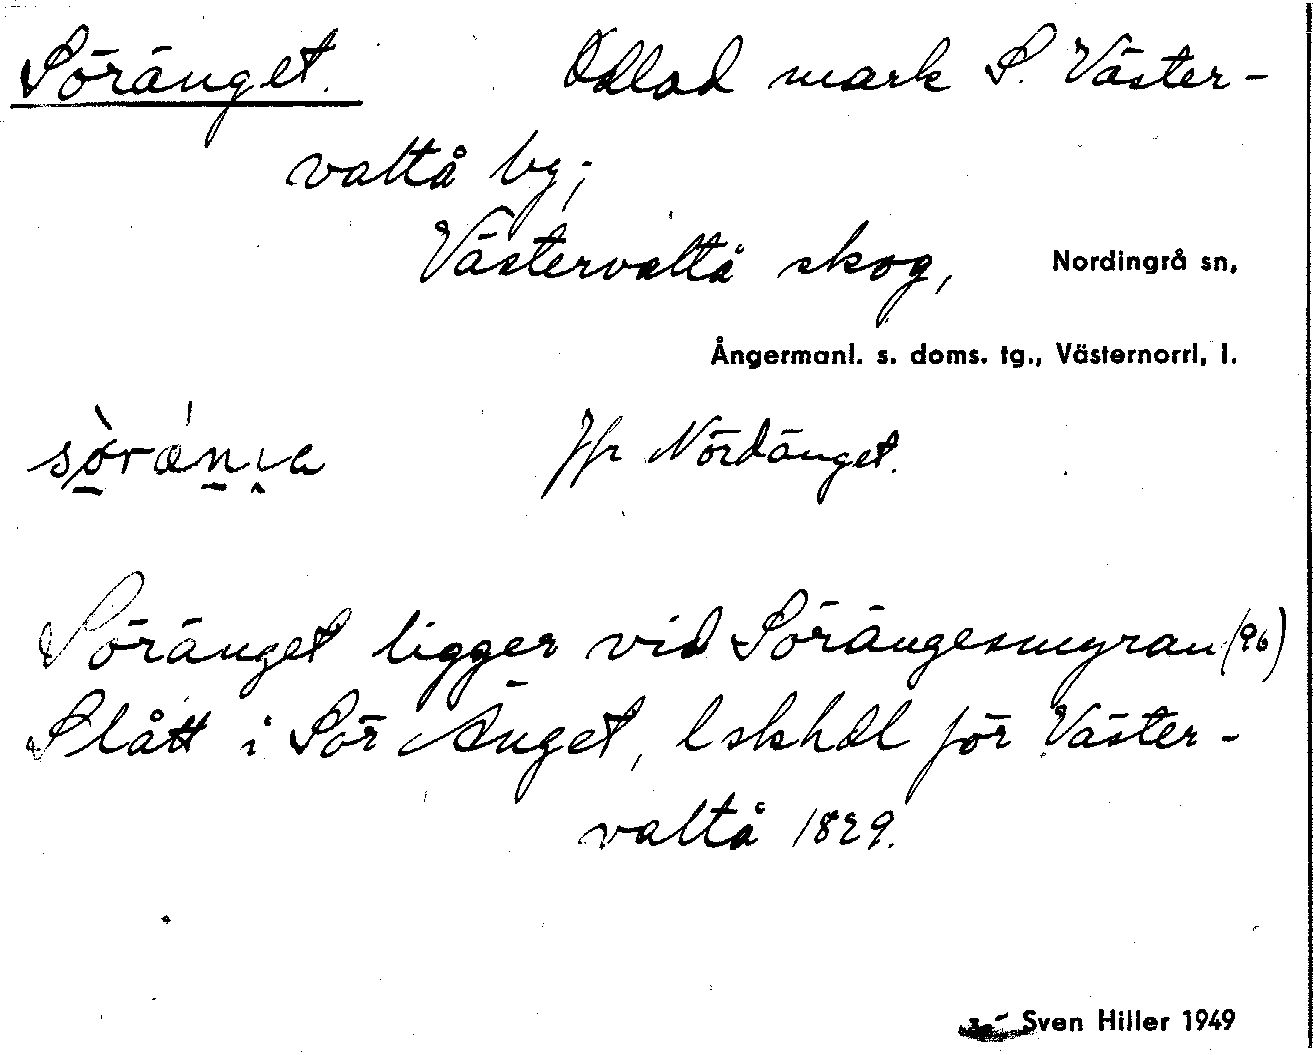 Söränget. Odlad mark S. Väster-
valtå by;
Västervaltå skog, Nordingrå sn,
Ångermanl. s. doms. tg., Västernorrl. l.
Jfr Nördänget.
Söränget ligger vid Sörängesmyran (96)
Slått i Sör Änget, lskhdl för Väster-
valtå 1829.
Sven Hiller 1949